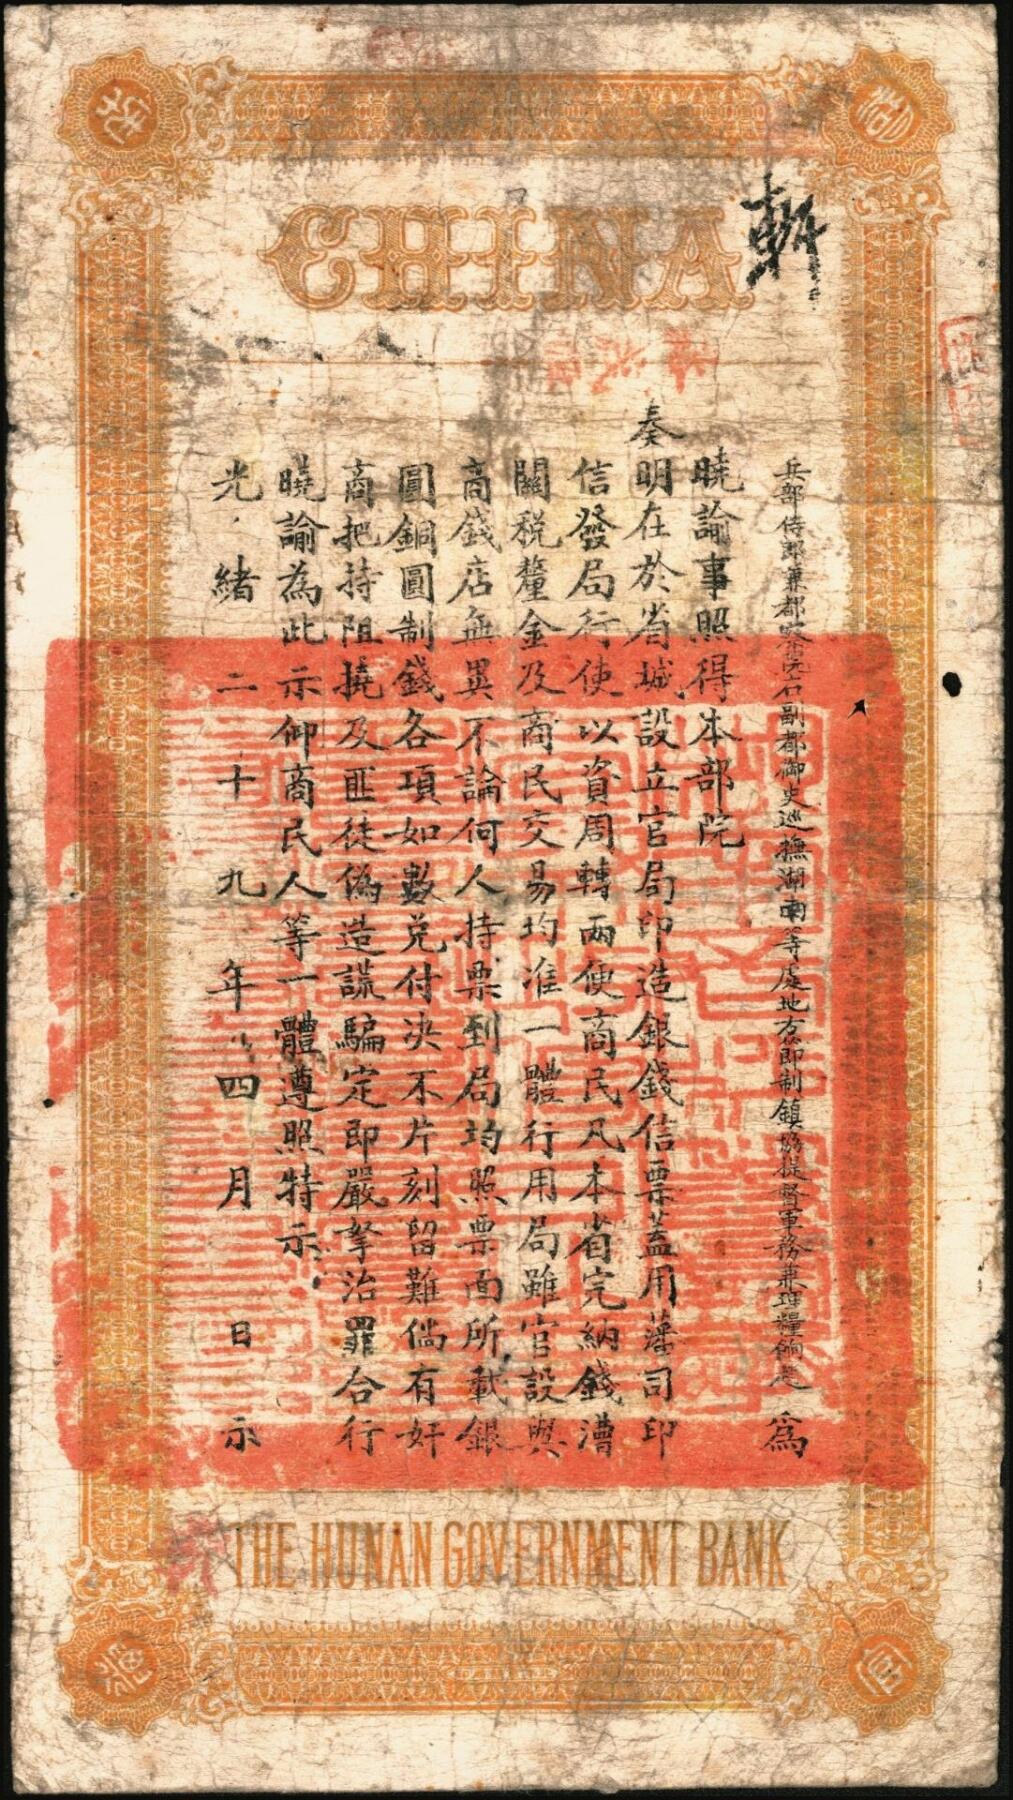 CHINA
兵部侍郎兼都察院右副都御史巡撫湖南等處地方節制鎮協提督軍務兼理糧餉趙 爲
曉諭事照得本部院
奏明在於省城設立官局印造銀錢信票蓋用藩司印
信發局行使以資周轉而便商民凡本省完納錢漕
關税釐金及商民交易均准一體行用局雖官設與
商錢店無異不論何人持票到局均照票面所載銀
圓銅圓制錢各項如數兌付决不片刻留難倘有奸
商把持阻撓及匪徒偽造謊騙定即嚴拏治罪合行
曉諭為此示仰商民人等一體遵照特示
光緒二十九年四月 日示
THE HUNAN GOVERNMENT BANK